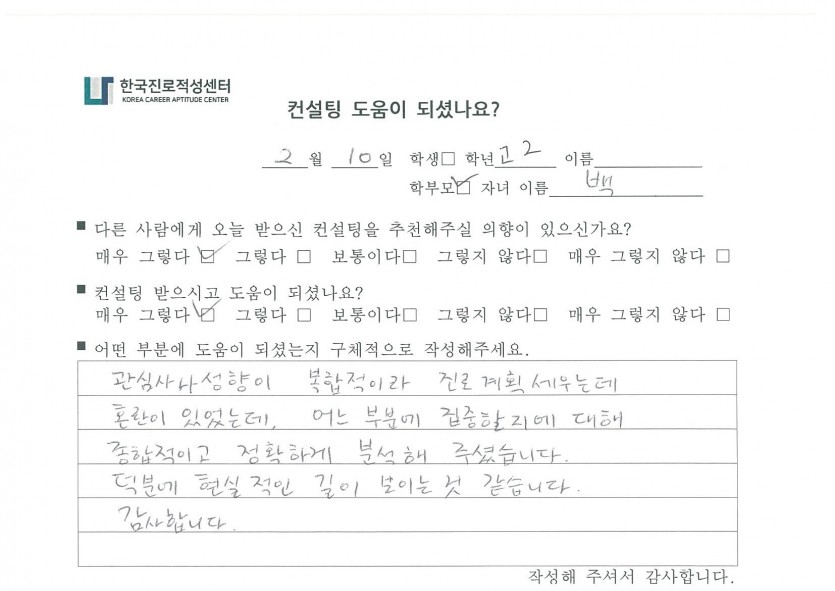 한국진로적성센터
KOREA CAREER APTITUDE CENTER
컨설팅 도움이 되셨나요?
2 월 10 일 학생□ 학년 고2 이름
학부모☑ 자녀 이름 백
■ 다른 사람에게 오늘 받으신 컨설팅을 추천해주실 의향이 있으신가요?
매우 그렇다 ☑ 그렇다 □ 보통이다□ 그렇지 않다□ 매우 그렇지 않다 □
■ 컨설팅 받으시고 도움이 되셨나요?
매우 그렇다 ☑ 그렇다 □ 보통이다□ 그렇지 않다□ 매우 그렇지 않다 □
■ 어떤 부분에 도움이 되셨는지 구체적으로 작성해주세요.
관심사나 성향이 복합적이라 진로계획 세우는데
혼란이 있었는데, 어느 부분에 집중할지에 대해
종합적이고 정확하게 분석해 주셨습니다.
덕분에 현실적인 길이 보이는 것 같습니다.
감사합니다.
작성해 주셔서 감사합니다.